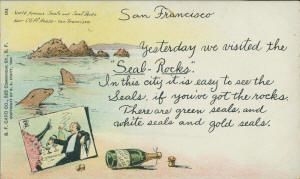 World famous Seals and Seal Rocks
near Cliff House - San Francisco.
San Francisco
Yesterday we visited the
"Seal-Rocks."
In this city it is easy to see the
Seals, if you've got the rocks.
There are green seals, and
white seals and gold seals.